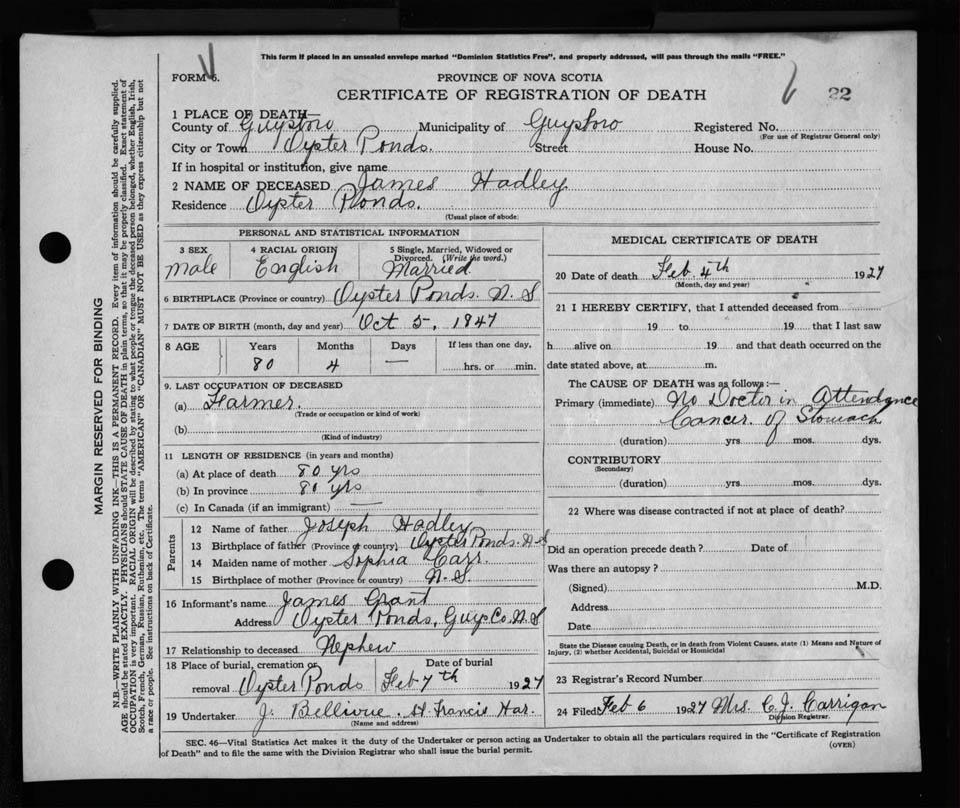 This form if placed in an unsealed envelope marked "Dominion Statistics Free", and properly addressed, will pass through the mails "FREE."
FORM 6.
PROVINCE OF NOVA SCOTIA
CERTIFICATE OF REGISTRATION OF DEATH
6 22
1 PLACE OF DEATH—
County of Guysboro Municipality of Guysboro Registered No.
(For use of Registrar General only)
City or Town Oyster Ponds. Street House No.
If in hospital or institution, give name
2 NAME OF DECEASED James Hadley
Residence Oyster Ponds.
(Usual place of abode)
PERSONAL AND STATISTICAL INFORMATION
3 SEX 4 RACIAL ORIGIN 5 Single, Married, Widowed or Divorced. (Write the word.)
Male English Married
6 BIRTHPLACE (Province or country) Oyster Ponds. N. S
7 DATE OF BIRTH (month, day and year) Oct 5, 1847
8 AGE Years Months Days If less than one day,
80 4 — hrs. or min.
9. LAST OCCUPATION OF DECEASED
(a) Farmer.
(Trade or occupation or kind of work)
(b)
(Kind of industry)
11 LENGTH OF RESIDENCE (in years and months)
(a) At place of death 80 yrs
(b) In province 80 yrs
(c) In Canada (if an immigrant) —
Parents
12 Name of father Joseph Hadley
13 Birthplace of father (Province or country) Oyster Ponds. N. S
14 Maiden name of mother Sophia Carr.
15 Birthplace of mother (Province or country) N. S.
16 Informant's name James Grant
Address Oyster Ponds, Guys Co. N. S
17 Relationship to deceased Nephew
18 Place of burial, cremation or removal Oyster Ponds Date of burial Feb 7th 1927
19 Undertaker J. Bellivue. St Francis Har.
(Name and address)
MEDICAL CERTIFICATE OF DEATH
20 Date of death Feb. 4th 1927
(Month, day and year)
21 I HEREBY CERTIFY, that I attended deceased from
19 to 19 that I last saw
h alive on 19 and that death occurred on the
date stated above, at m.
The CAUSE OF DEATH was as follows:—
Primary (immediate) No Doctor in Attendance
Cancer. of Stomach
(duration) yrs. mos. dys.
CONTRIBUTORY
(Secondary)
(duration) yrs. mos. dys.
22 Where was disease contracted if not at place of death?
Did an operation precede death? Date of
Was there an autopsy?
(Signed) M.D.
Address
Date
State the Disease causing Death, or in death from Violent Causes, state (1) Means and Nature of
Injury, (2) whether Accidental, Suicidal or Homicidal
23 Registrar's Record Number
24 Filed Feb 6 1927 Mrs. C. J. Carrigan
Division Registrar.
SEC. 46—Vital Statistics Act makes it the duty of the Undertaker or person acting as Undertaker to obtain all the particulars required in the "Certificate of Registration
of Death" and to file the same with the Division Registrar who shall issue the burial permit.
(OVER)
MARGIN RESERVED FOR BINDING
N.B.—WRITE PLAINLY WITH UNFADING INK—THIS IS A PERMANENT RECORD. Every item of information should be carefully supplied.
AGE should be stated EXACTLY. PHYSICIANS should STATE CAUSE OF DEATH in plain terms, so that it may be properly classified. Exact statement of
OCCUPATION is very important. RACIAL ORIGIN will be described by stating to what people or tongue the deceased person belonged, whether English, Irish,
Scotch, French, German, Russian, Ruthenian, etc. The terms "AMERICAN" OR "CANADIAN" MUST NOT BE USED as they express citizenship but not
a race or people. See instructions on back of Certificate.